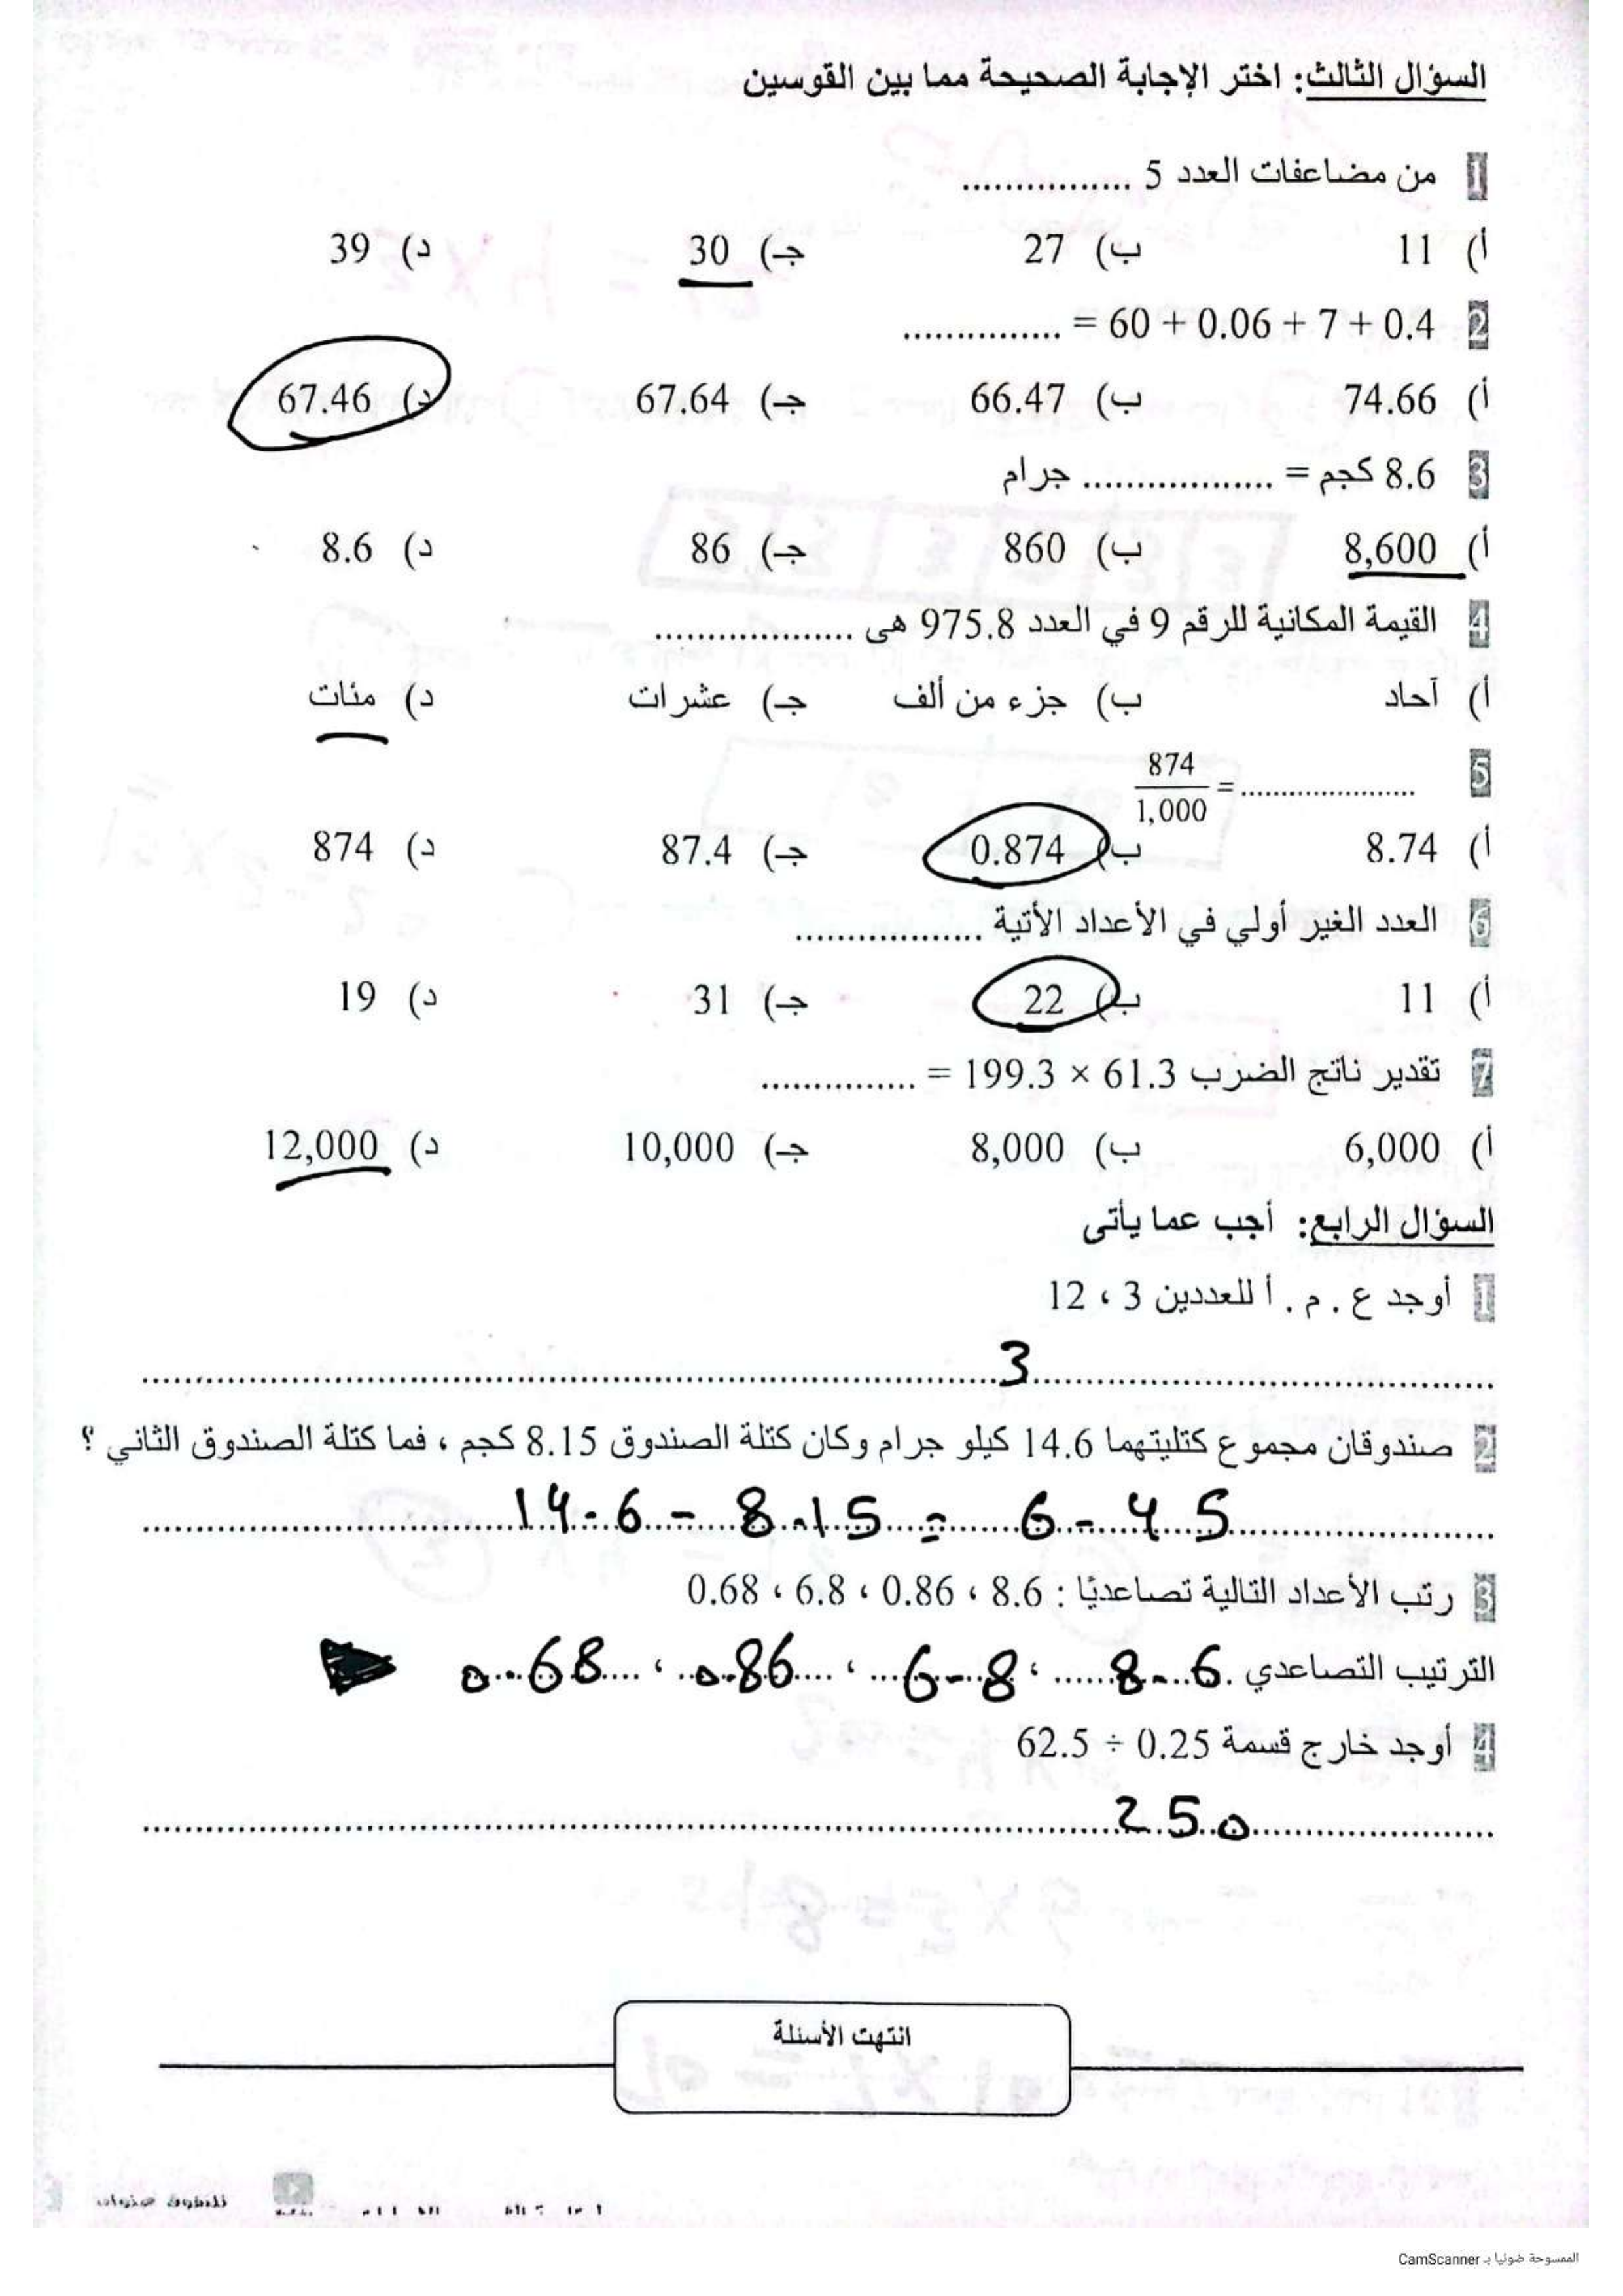 السؤال الثالث: اختر الإجابة الصحيحة مما بين القوسين
1 من مضاعفات العدد 5 ................
أ) 11 ب) 27 جـ) 30 د) 39
2 60 + 0.06 + 7 + 0.4 = ...............
أ) 74.66 ب) 66.47 جـ) 67.64 د) 67.46
3 8.6 كجم = .................. جرام
أ) 8,600 ب) 860 جـ) 86 د) 8.6
4 القيمة المكانية للرقم 9 في العدد 975.8 هى ...................
أ) آحاد ب) جزء من ألف جـ) عشرات د) مئات
5 874/1,000 = ......................
أ) 8.74 ب) 0.874 جـ) 87.4 د) 874
6 العدد الغير أولي في الأعداد الأتية ..................
أ) 11 ب) 22 جـ) 31 د) 19
7 تقدير ناتج الضرب 61.3 × 199.3 = ...............
أ) 6,000 ب) 8,000 جـ) 10,000 د) 12,000
السؤال الرابع: أجب عما يأتى
1 أوجد ع . م . أ للعددين 3 ، 12
3
2 صندوقان مجموع كتليتهما 14.6 كيلو جرام وكان كتلة الصندوق 8.15 كجم ، فما كتلة الصندوق الثاني ؟
14.6 - 8.15 = 6.45
3 رتب الأعداد التالية تصاعديًا : 8.6 ، 0.86 ، 6.8 ، 0.68
الترتيب التصاعدي 8.6 ، 6.8 ، 0.86 ، 0.68
4 أوجد خارج قسمة 0.25 ÷ 62.5
250
انتهت الأسئلة
الممسوحة ضوئيا بـ CamScanner